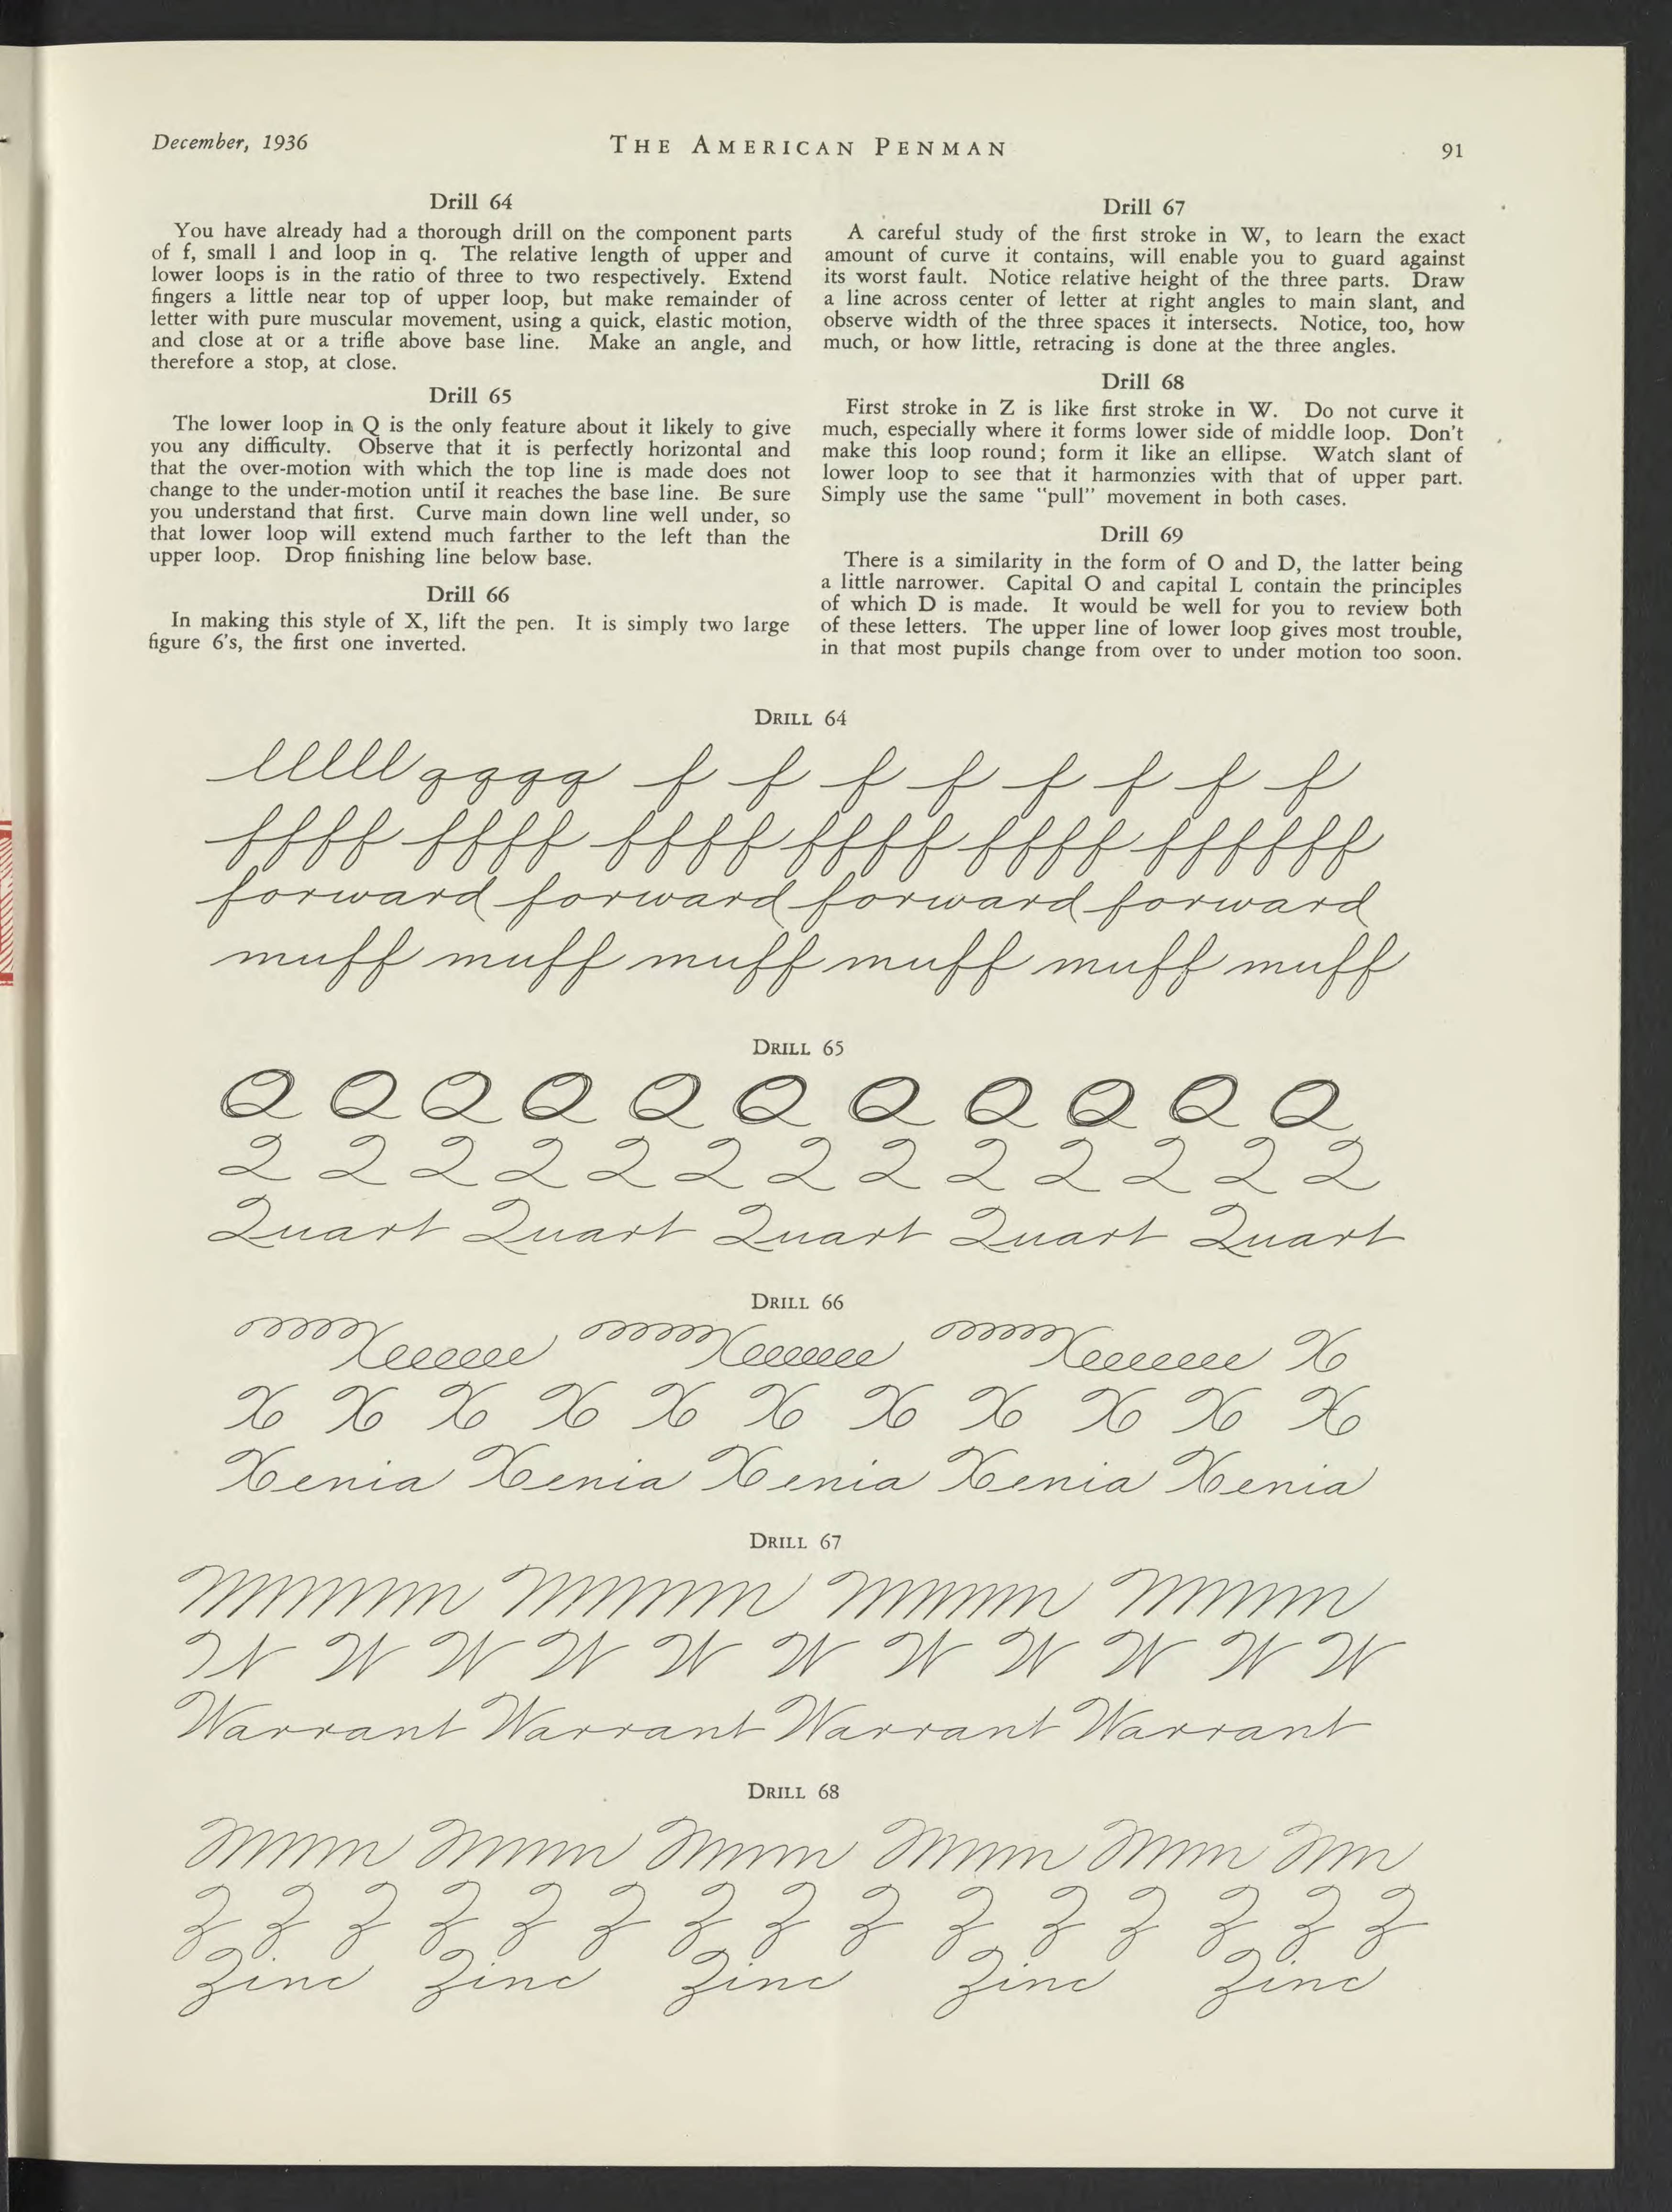 December, 1936
THE AMERICAN PENMAN
91
Drill 64
You have already had a thorough drill on the component parts
of f, small l and loop in q. The relative length of upper and
lower loops is in the ratio of three to two respectively. Extend
fingers a little near top of upper loop, but make remainder of
letter with pure muscular movement, using a quick, elastic motion,
and close at or a trifle above base line. Make an angle, and
therefore a stop, at close.
Drill 65
The lower loop in Q is the only feature about it likely to give
you any difficulty. Observe that it is perfectly horizontal and
that the over-motion with which the top line is made does not
change to the under-motion until it reaches the base line. Be sure
you understand that first. Curve main down line well under, so
that lower loop will extend much farther to the left than the
upper loop. Drop finishing line below base.
Drill 66
In making this style of X, lift the pen. It is simply two large
figure 6's, the first one inverted.
Drill 67
A careful study of the first stroke in W, to learn the exact
amount of curve it contains, will enable you to guard against
its worst fault. Notice relative height of the three parts. Draw
a line across center of letter at right angles to main slant, and
observe width of the three spaces it intersects. Notice, too, how
much, or how little, retracing is done at the three angles.
Drill 68
First stroke in Z is like first stroke in W. Do not curve it
much, especially where it forms lower side of middle loop. Don't
make this loop round; form it like an ellipse. Watch slant of
lower loop to see that it harmonzies with that of upper part.
Simply use the same "pull" movement in both cases.
Drill 69
There is a similarity in the form of O and D, the latter being
a little narrower. Capital O and capital L contain the principles
of which D is made. It would be well for you to review both
of these letters. The upper line of lower loop gives most trouble,
in that most pupils change from over to under motion too soon.
DRILL 64
lllll qqqq f f f f f f f f
ffff ffff ffff ffff ffff ffffff
forward forward forward forward
muff muff muff muff muff muff
DRILL 65
Q Q Q Q Q Q Q Q Q Q Q
Q Q Q Q Q Q Q Q Q Q Q Q Q
Quart Quart Quart Quart Quart
DRILL 66
X
X X X X X X X X X X X
Xenia Xenia Xenia Xenia Xenia
DRILL 67
W W W W W W W W W W W
Warrant Warrant Warrant Warrant
DRILL 68
Z Z Z Z Z Z Z Z Z Z Z Z Z Z Z
Zinc Zinc Zinc Zinc Zinc